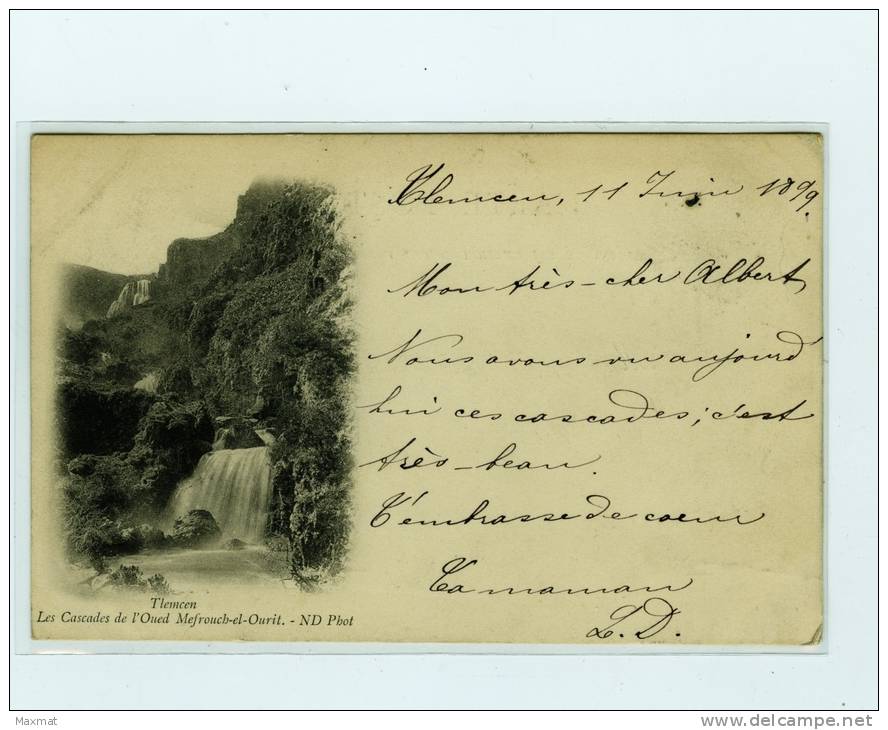 Tlemcen, 11 Juin 1899
Mon très-cher Albert,
Nous avons vu aujourd'
hui ces cascades; c'est
très-beau.
T'embrasse de coeur
Ta maman
L. D.
Tlemcen
Les Cascades de l'Oued Mefrouch-el-Ourit. - ND Phot
Maxmat
www.delcampe.net